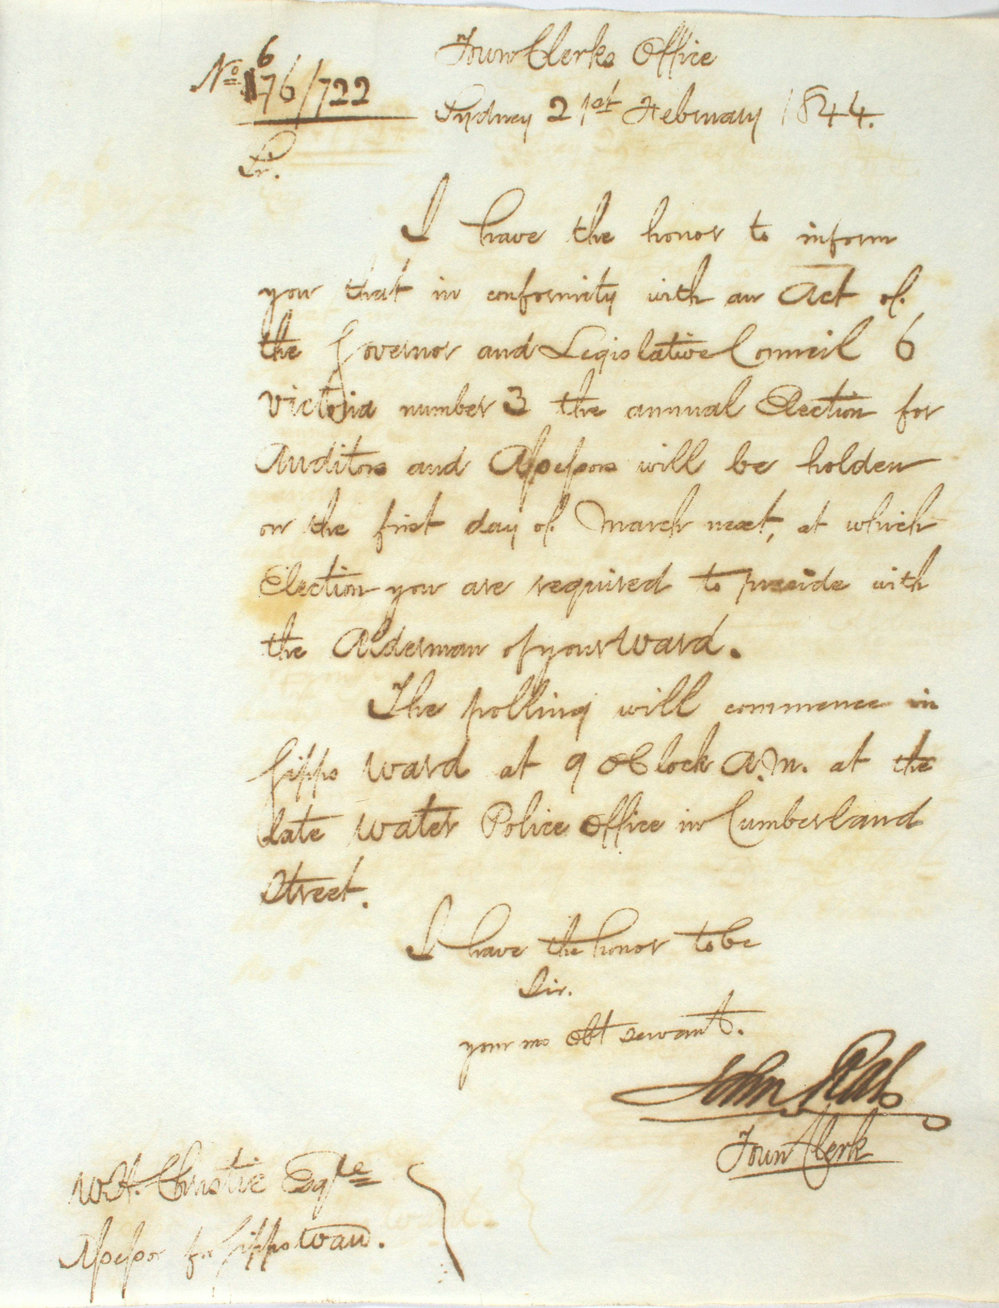 Town Clerks Office
No 676/722
Sydney 21st February 1844.
Sir.
I have the honor to inform
you that in conformity with an Act of
the Governor and Legislative Council 6
Victoria number 3 the annual Election for
Auditors and Assessors will be holden
on the first day of March next, at which
Election you are required to preside with
the Alderman of your Ward.
The polling will commence in
Gipps Ward at 9 oClock A.M. at the
late Water Police Office in Cumberland
Street.
I have the honor to be
Sir.
your mo obt servant.
John Rae
Town Clerk
W.H. Christie Esqre
Assessor for Gipps Ward.